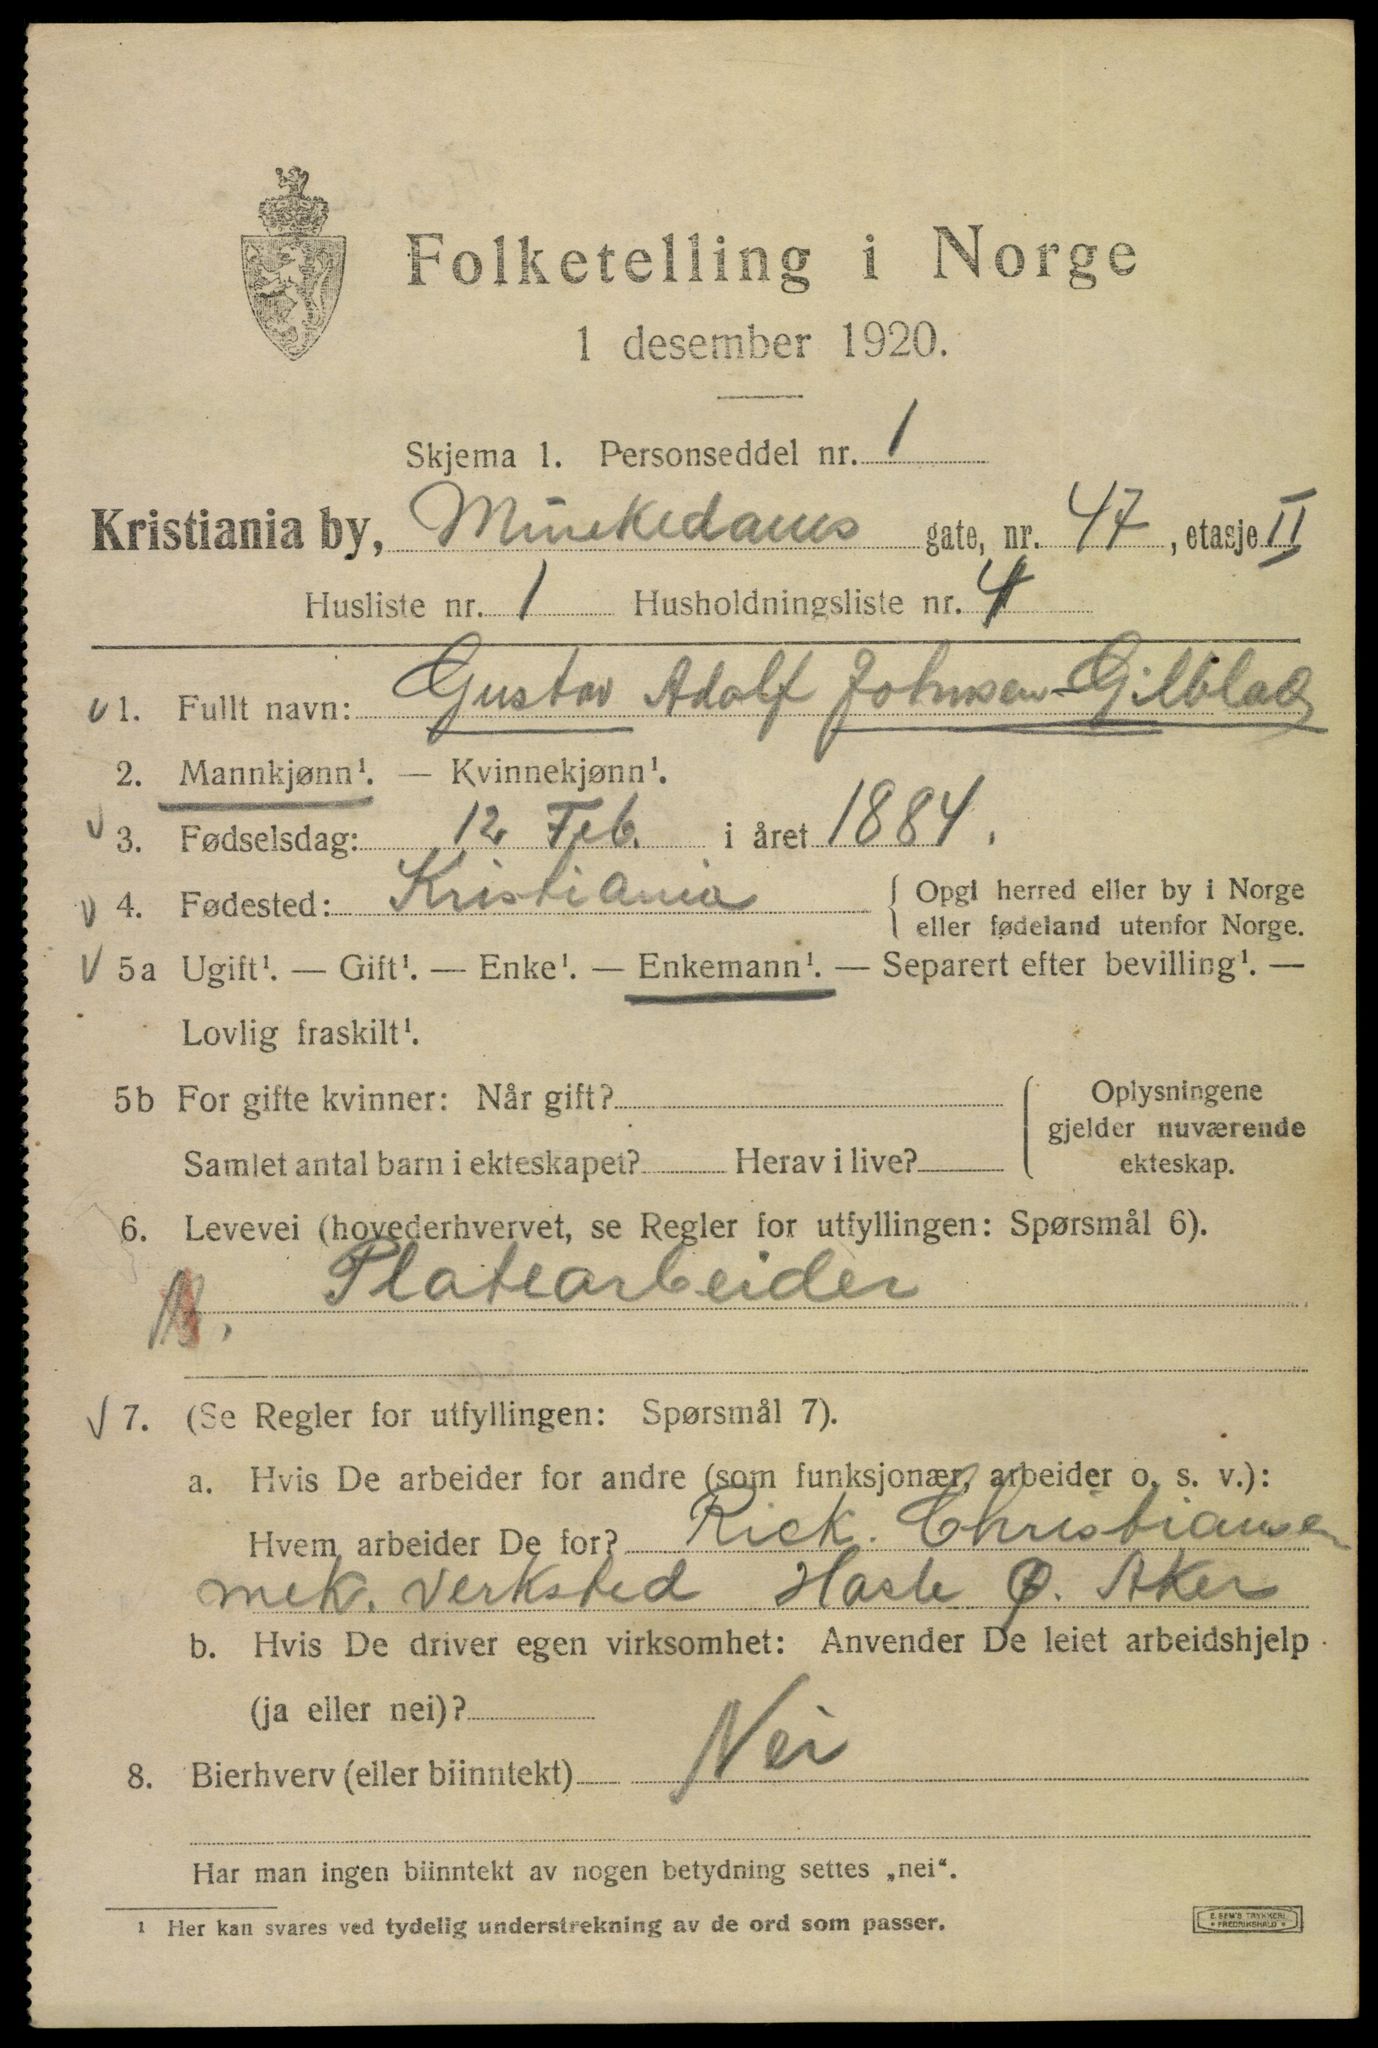 Folketelling i Norge
1 desember 1920.
Skjema 1. Personseddel nr. 1
Kristiania by, Munkedams gate, nr. 47, etasje II
Husliste nr. 1 Husholdningsliste nr. 4
v 1. Fullt navn: Gustav Adolf Johnsen-Gilblad
2. Mannkjønn¹. — Kvinnekjønn¹.
v 3. Fødselsdag: 12 Feb. i året 1884.
v 4. Fødested: Kristiania { Opgi herred eller by i Norge
eller fødeland utenfor Norge.
v 5a Ugift¹. — Gift¹. — Enke¹. — Enkemann¹. — Separert efter bevilling¹. —
Lovlig fraskilt¹.
5b For gifte kvinner: Når gift?
Samlet antal barn i ekteskapet? Herav i live?
Oplysningene
gjelder nuværende
ekteskap.
6. Levevei (hovederhvervet, se Regler for utfyllingen: Spørsmål 6).
Platearbeider
v 7. (Se Regler for utfyllingen: Spørsmål 7).
a. Hvis De arbeider for andre (som funksjonær, arbeider o. s. v.):
Hvem arbeider De for? Rick. Christiansen
mek. verksted Hasle Ø. Aker
b. Hvis De driver egen virksomhet: Anvender De leiet arbeidshjelp
(ja eller nei)?
8. Bierhverv (eller biinntekt) Nei
Har man ingen biinntekt av nogen betydning settes „nei“.
¹ Her kan svares ved tydelig understrekning av de ord som passer.
E. SEM'S TRYKKERI
• FREDRIKSHALD •